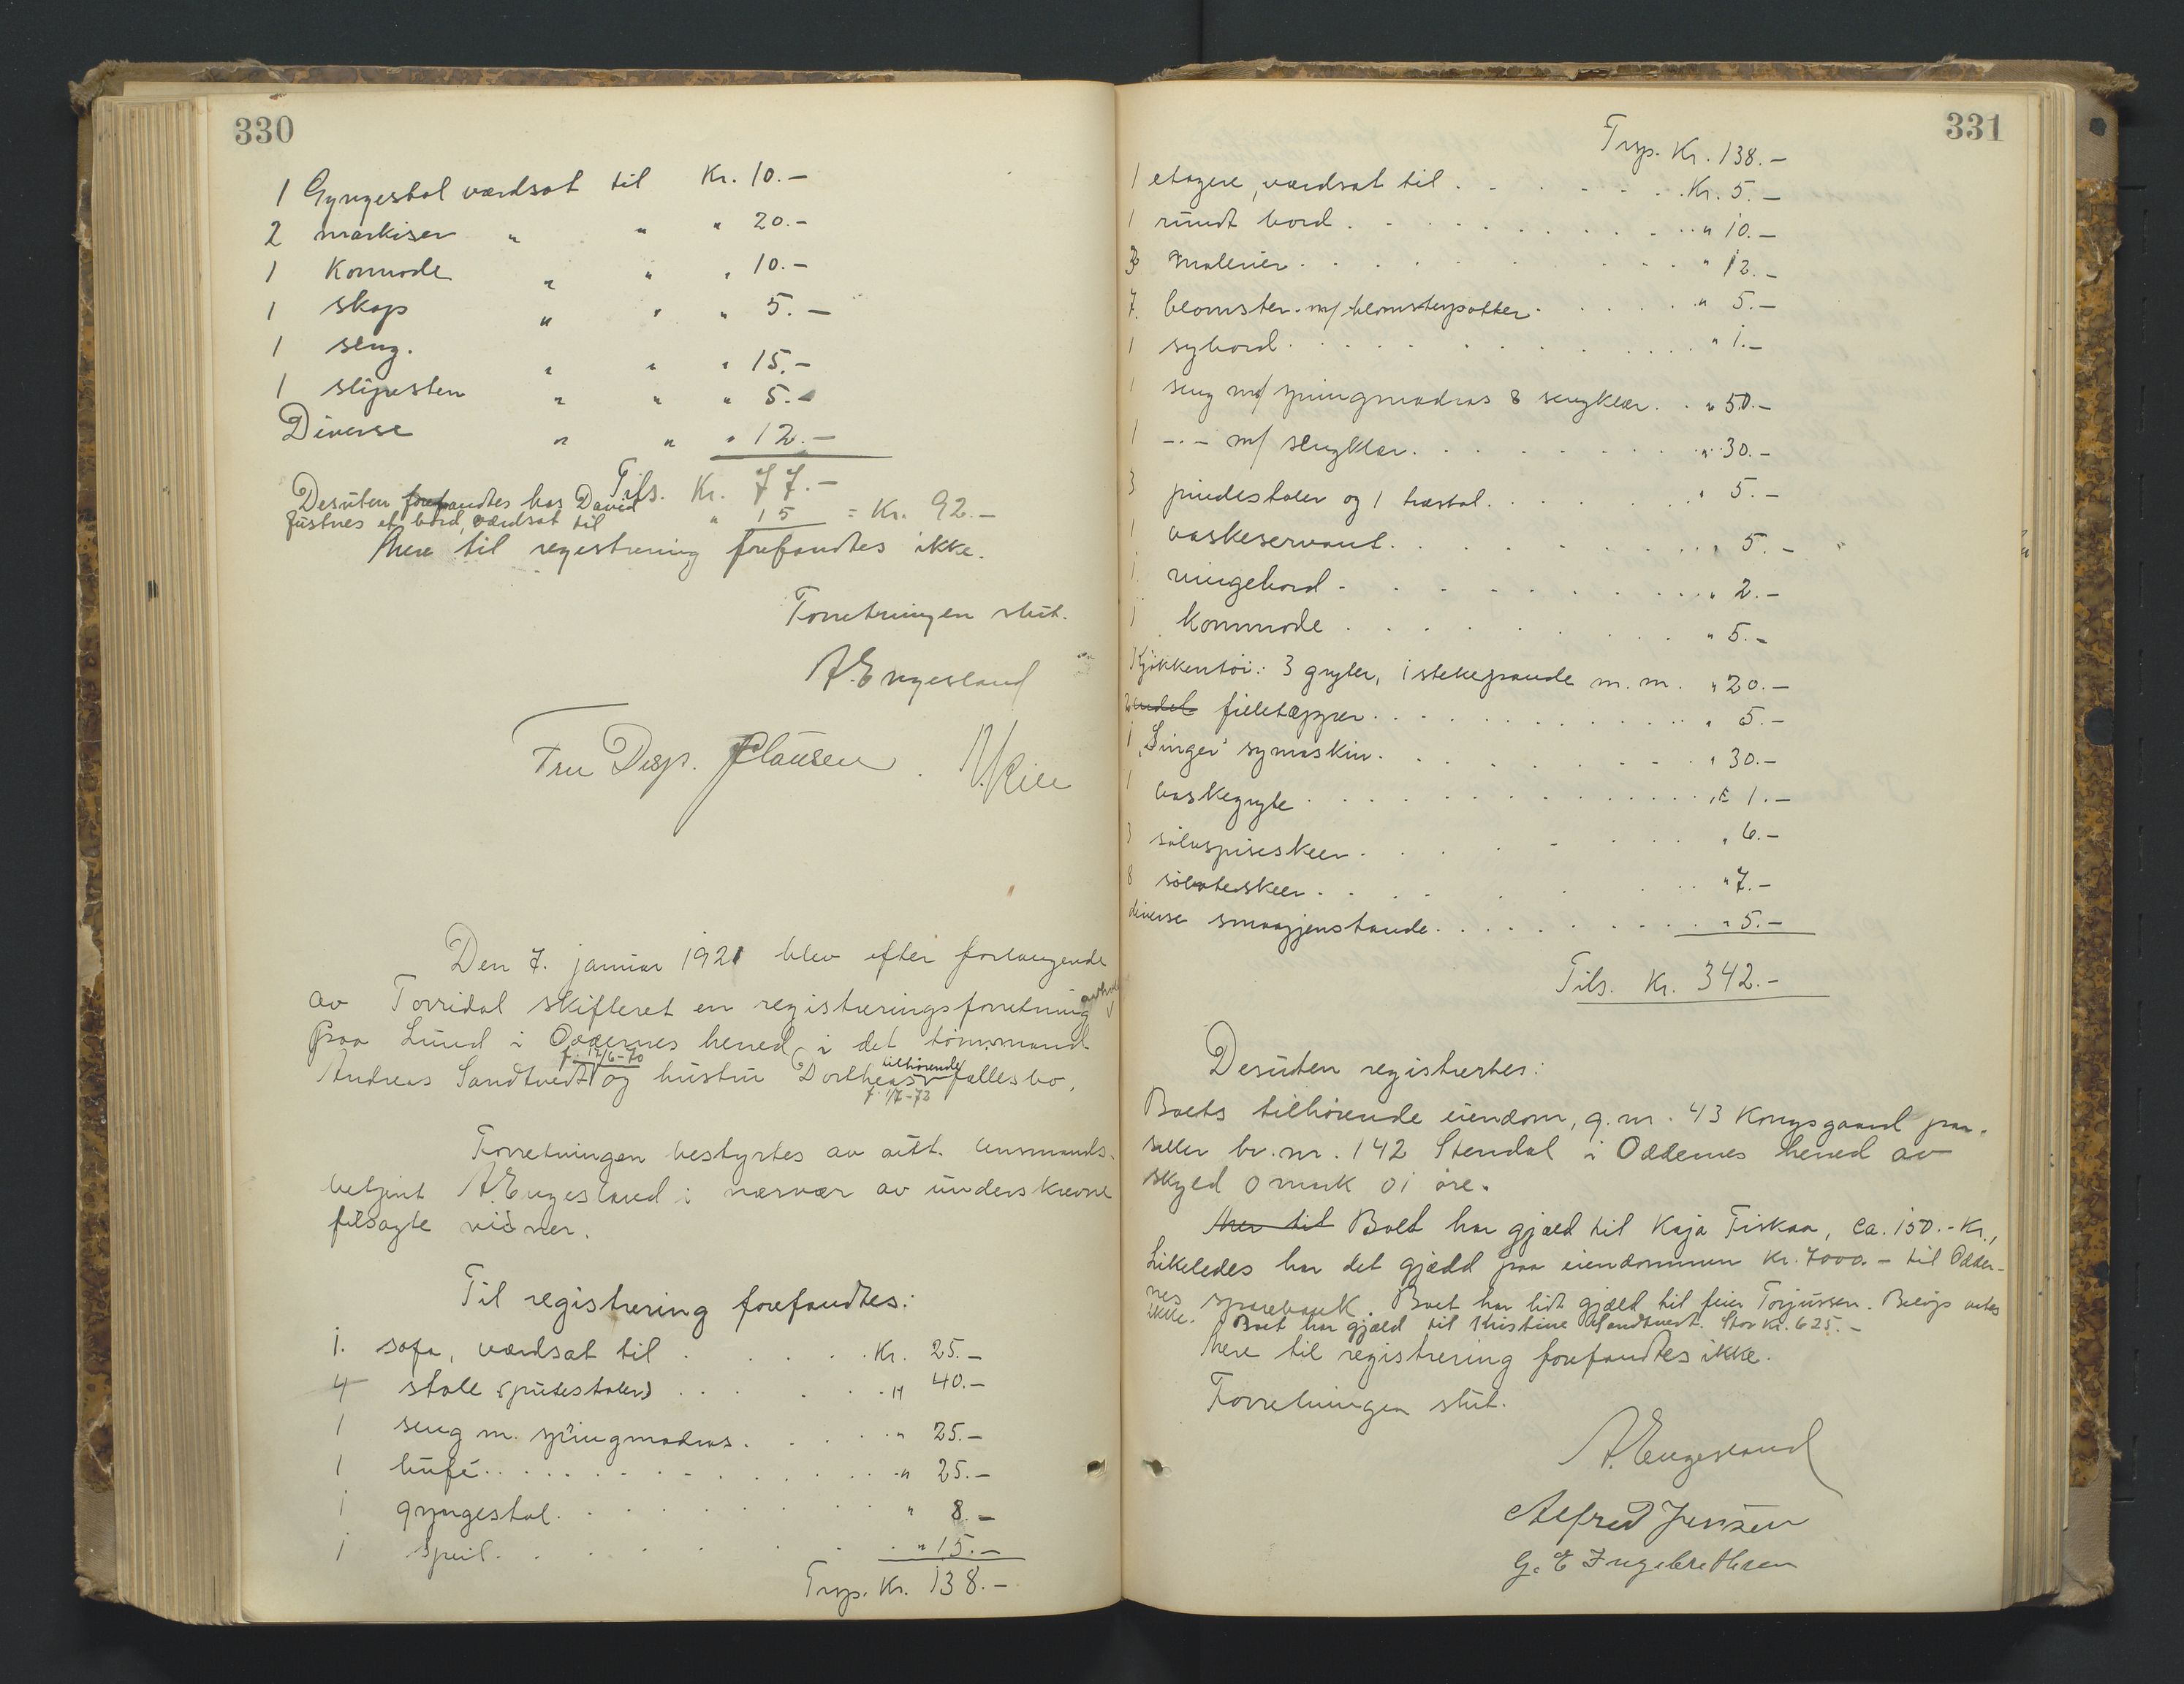 330
1 Gyngestol værdsat til Kr. 10.-
2 markiser " " " 20.-
1 Kommode " " " 10.-
1 skap " " " 5.-
1 seng. " " " 15.-
1 slipesten " " " 5.-
Diverse " " " 12.-
Tils. Kr. 77.-
Desuten forefandtes hos David
Justnes et bord, værdsat til " 15 = Kr. 92.-
Mere til registrering forefandtes ikke.
Forretningen slut.
A. Engesland
Fru Disp. Clausen. N. Kile
Den 7. januar 1921 blev efter forlangende
av Torridal skifteret en registreringsforretning avholdt
paa Lund i Oddernes herred i det tømmermand
Andreas Sandtvedt f. 12/6-70 og hustru Dortheas f. 1/7-72 tilhørende fællesbo.
Forretningen bestyrtes av aut. lensmands-
betjent A. Engesland i nærvær av underskrevne
tilsagte vidner.
Til registrering forefandtes:
1. sofa, værdsat til . . . . . Kr. 25.-
4 stole (putestoler) . . . . . " 40.-
1 seng m. springmadras. . . . . " 25.-
1 bufé. . . . . . . . . . " 25.-
1 gyngestol. . . . . . . . " 8.-
1 speil. . . . . . . . " 15.-
Trsp. Kr. 138.-
331
Trsp. Kr. 138.-
1 etagere, værdsat til . . . . . . Kr. 5.-
1 rundt bord. . . . . . . . . . " 10.-
3 malerier. . . . . . . . . . " 12.-
7. blomster m/ blomsterpotter. . . . . " 5.-
1 sybord. . . . . . . . . . . " 1.-
1 seng m/ springmadras & sengklær. . " 50.-
1 -.- m/ sengklær. . . . . . . . " 30.-
3 pindestoler og 1 træstol. . . . . . " 5.-
1 vaskeservant. . . . . . . . . " 5.-
1. ringebord. . . . . . . . . . " 2.-
1 kommode . . . . . . . . . " 5.-
Kjøkkentøi: 3 gryter, 1 stekepande m. m. " 20.-
2 endel filletæpper. . . . . . . . . . " 5.-
1 "Singer" symaskin. . . . . . . . . " 30.-
1 vaskegryte . . . . . . . . . . " 1.-
3 sølvspiseskeer. . . . . . . . . " 6.-
8 sølvteskeer. . . . . . . . . " 7.-
diverse smaagjenstande. . . . . . . . . " 5.-
Tils. Kr. 342.-
Desuten registrertes:
Boets tilhørende eiendom, g.nr. 43 Kongsgaard par-
seller br.nr. 142 Stendal i Oddernes herred av
skyld 0 mark 01 øre.
Mer til Boet har gjæld til Kaja Fiskaa, ca. 150.- Kr.,
Likeledes har det gjæld paa eiendommen Kr. 7000.- til Odder-
nes sparebank. Boet har lidt gjæld til feier Torjussen. Beløp vites
ikke. Boet har gjæld til Kristine Sandtvedt. Stor Kr. 625.-
Mere til registrering forefandtes ikke.
Forretningen slut.
A. Engesland
Alfred Jensen
G. E Ingebrethsen